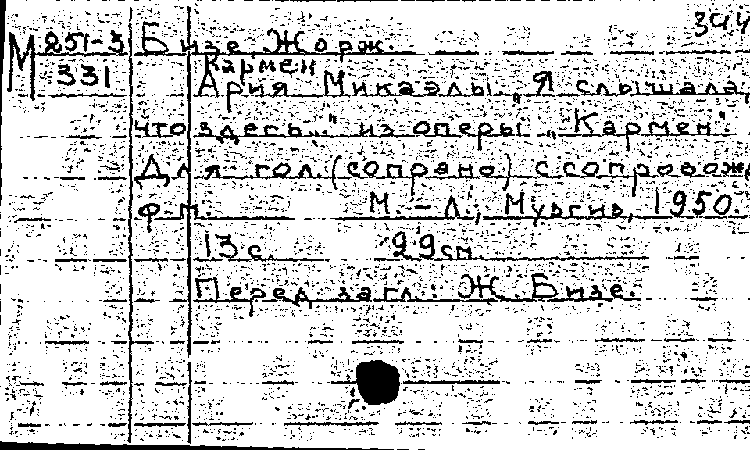 344
М 251-3 Бизе, Жорж.
331 Кармен
Ария Микаэлы „Я слышала,
что здесь..." из оперы „Кармен".
Для гол. (сопрано) с сопровожд.
ф-п. М.-Л., Музгиз, 1950.
13 с. 29 см
Перед загл.: Ж. Бизе.